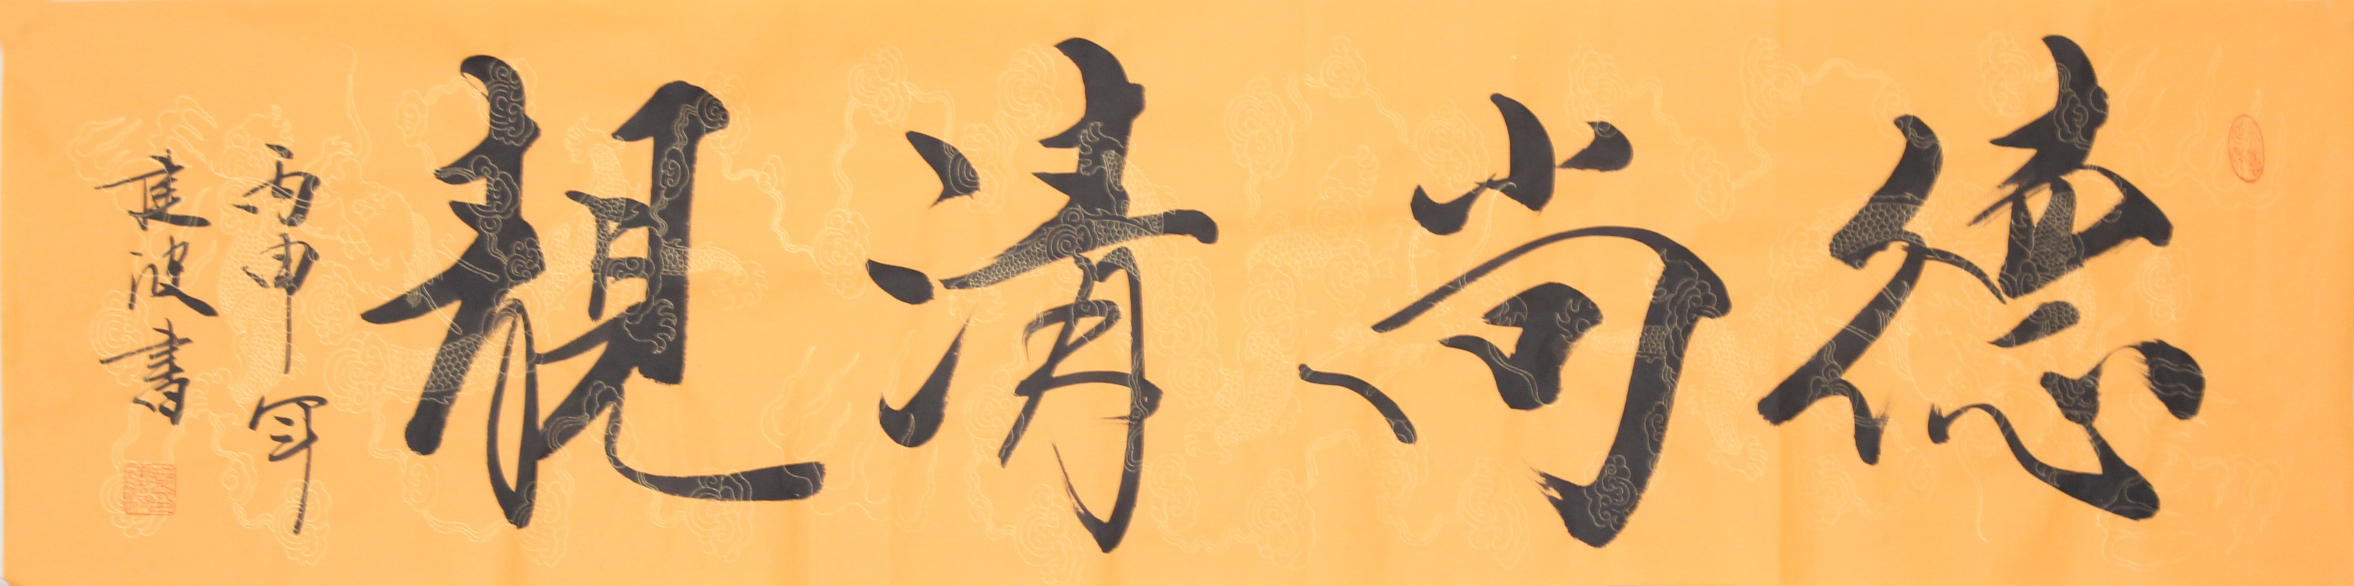 德尚清靚
丙申年
波書